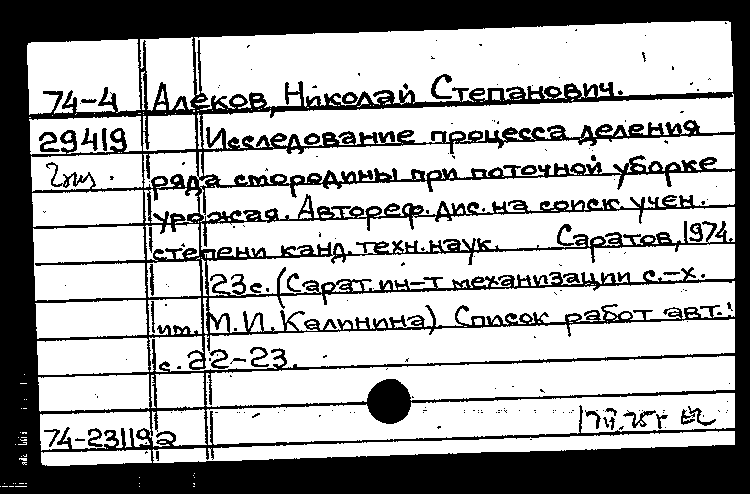 74-4 Алеков, Николай Степанович.
29419 Исследование процесса деления
2 экз. ряда смородины при поточной уборке
урожая. Автореф. дис. на соиск. учен.
степени канд. техн. наук. Саратов, 1974.
23с. (Сарат. ин-т механизации с.-х.
им. М.И. Калинина). Список работ авт.:
с. 22-23.
74-23119